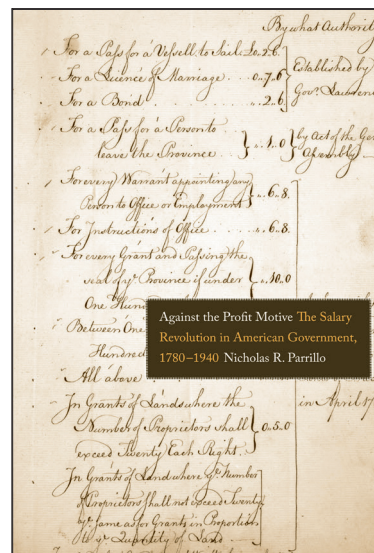 By what Authority
For a Pass for a Vessell to Sail £0.2.6
For a Licence of Marriage . . . 0..7..6
Established by
For a Bond . . . . . . .. 2..6
Govr. Lawrence
For a Pass for a Person to
leave the Province . . ..1..0
by Act of the Gen
Assembly —
For every Warrant appointing any
Person to Office or Employment ..6..8.
For Instructions of Office . . . . ..6..8.
For every Grant and Passing the
seal of ye Province if under ..10..0
One Hun
Against the Profit Motive The Salary
Revolution in American Government,
1780–1940 Nicholas R. Parrillo
Between One
Hundred
All above
in April 17
In Grants of Lands where the
Number of Proprietors shall 0..5..0
exceed Twenty Each Right.
In Grants of Land where ye Number
of Proprietors shall not exceed Twenty
ye same as for Grants in Proportion
to ye Quantity of Land —